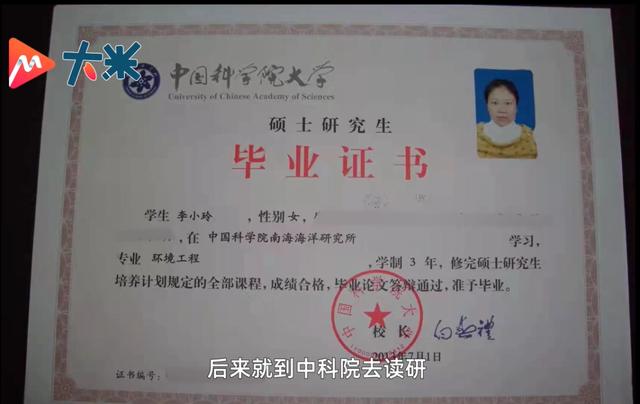 大米
中国科学院大学
University of Chinese Academy of Sciences
硕士研究生
毕业证书
学生 李小玲 ,性别女,
,在 中国科学院南海海洋研究所 学习,
专业 环境工程 ,学制 3 年，修完硕士研究生
培养计划规定的全部课程，成绩合格，毕业论文答辩通过，准予毕业。
中国科学院大学
校长
年7月1日
后来就到中科院去读研
证书编号：